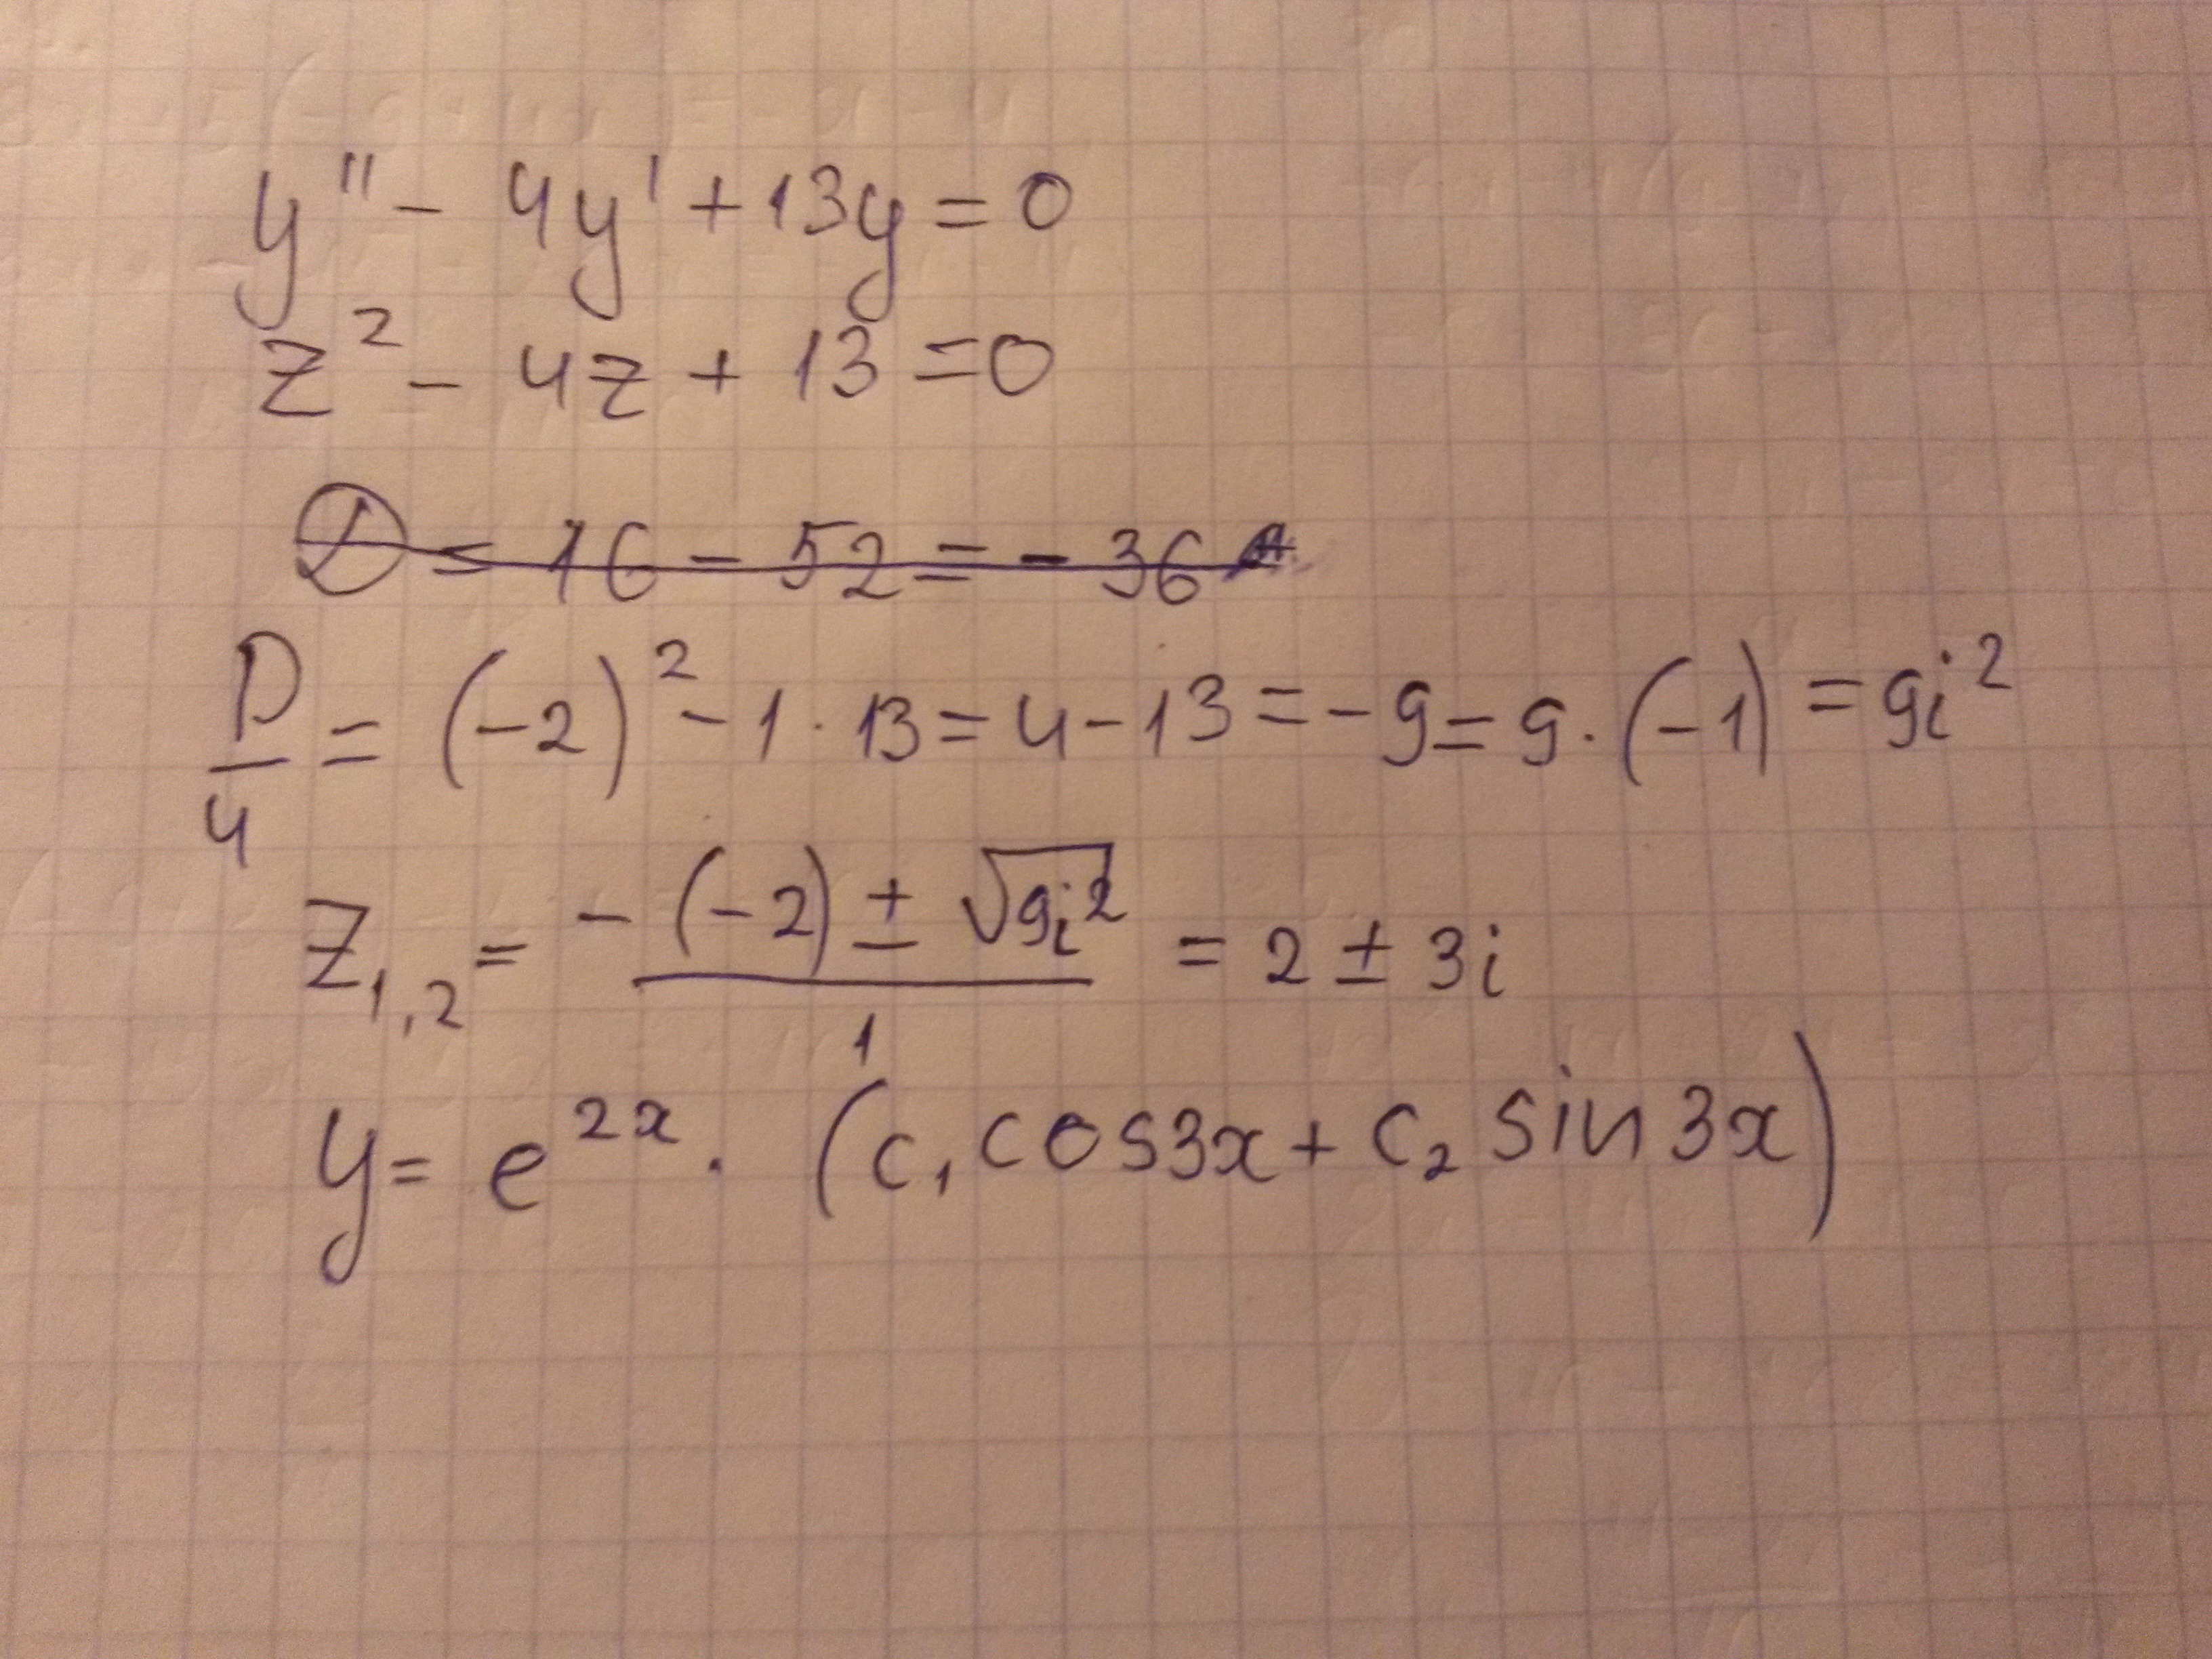 y'' - 4y' + 13y = 0
z² - 4z + 13 = 0
D = 16 - 52 = - 36
D/4 = (-2)² - 1 · 13 = 4 - 13 = -9 = 9 · (-1) = 9i²
z₁,₂ = (- (-2) ± √9i²)/1 = 2 ± 3i
y = e²ˣ · (c₁ cos3x + c₂ sin3x)